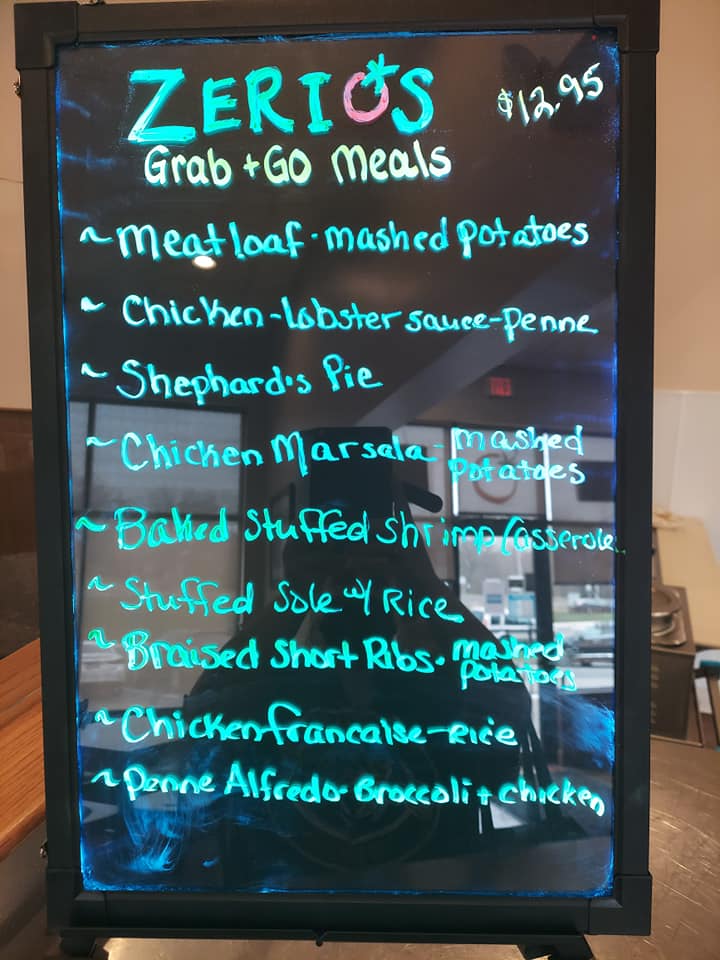 ZERIO'S
$12.95
Grab + Go Meals
~ Meatloaf - mashed potatoes
~ Chicken - Lobster sauce - penne
~ Shephard's Pie
~ Chicken Marsala - mashed
potatoes
~ Baked Stuffed Shrimp Casserole
~ Stuffed Sole w/ Rice
~ Braised Short Ribs - mashed
potatoes
~ Chicken francaise - Rice
~ Penne Alfredo - Broccoli + chicken